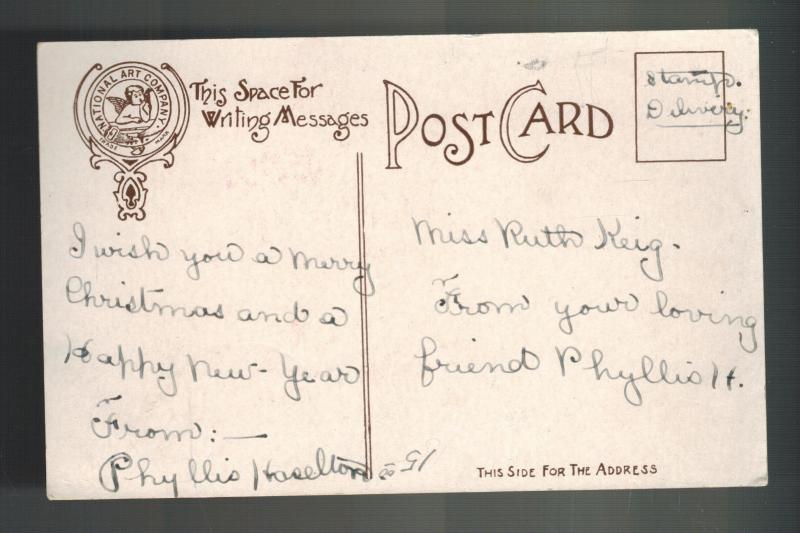 NATIONAL ART COMPANY
This Space For
Writing Messages
POST CARD
Stamp.
Delivery.
I wish you a merry
Christmas and a
Happy New-Year
From:—
Phyllis Haselton
Miss Ruth Keig.
From your loving
friend Phyllis H.
15 00
THIS SIDE FOR THE ADDRESS